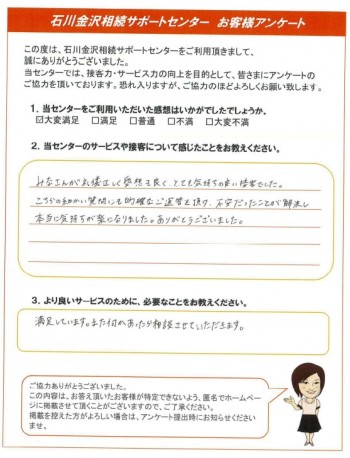 石川金沢相続サポートセンター お客様アンケート
この度は、石川金沢相続サポートセンターをご利用頂きまして、
誠にありがとうございました。
当センターでは、接客力・サービス力の向上を目的として、皆さまにアンケートの
ご協力を頂いております。恐れ入りますが、ご協力のほどよろしくお願い致します。
1. 当センターをご利用いただいた感想はいかがでしたでしょうか。
☑大変満足 □満足 □普通 □不満 □大変不満
2. 当センターのサービスや接客について感じたことをお教えください。
みなさんがお優しく愛想も良く、とても気持ちの良い接客でした。
こちらの細かい質問にも的確なご返答を頂け、不安だったことが解決し
本当に気持ちが楽になりました。ありがとうございました。
3. より良いサービスのために、必要なことをお教えください。
満足しています。また何かあったら相談させていただきます。
ご協力ありがとうございました。
この内容は、お答え頂いたお客様が特定できないよう、匿名でホームペー
ジに掲載させて頂くことがございますので、ご了承ください。
掲載を控えた方がよろしい場合は、アンケート提出時にお知らせください
ませ。